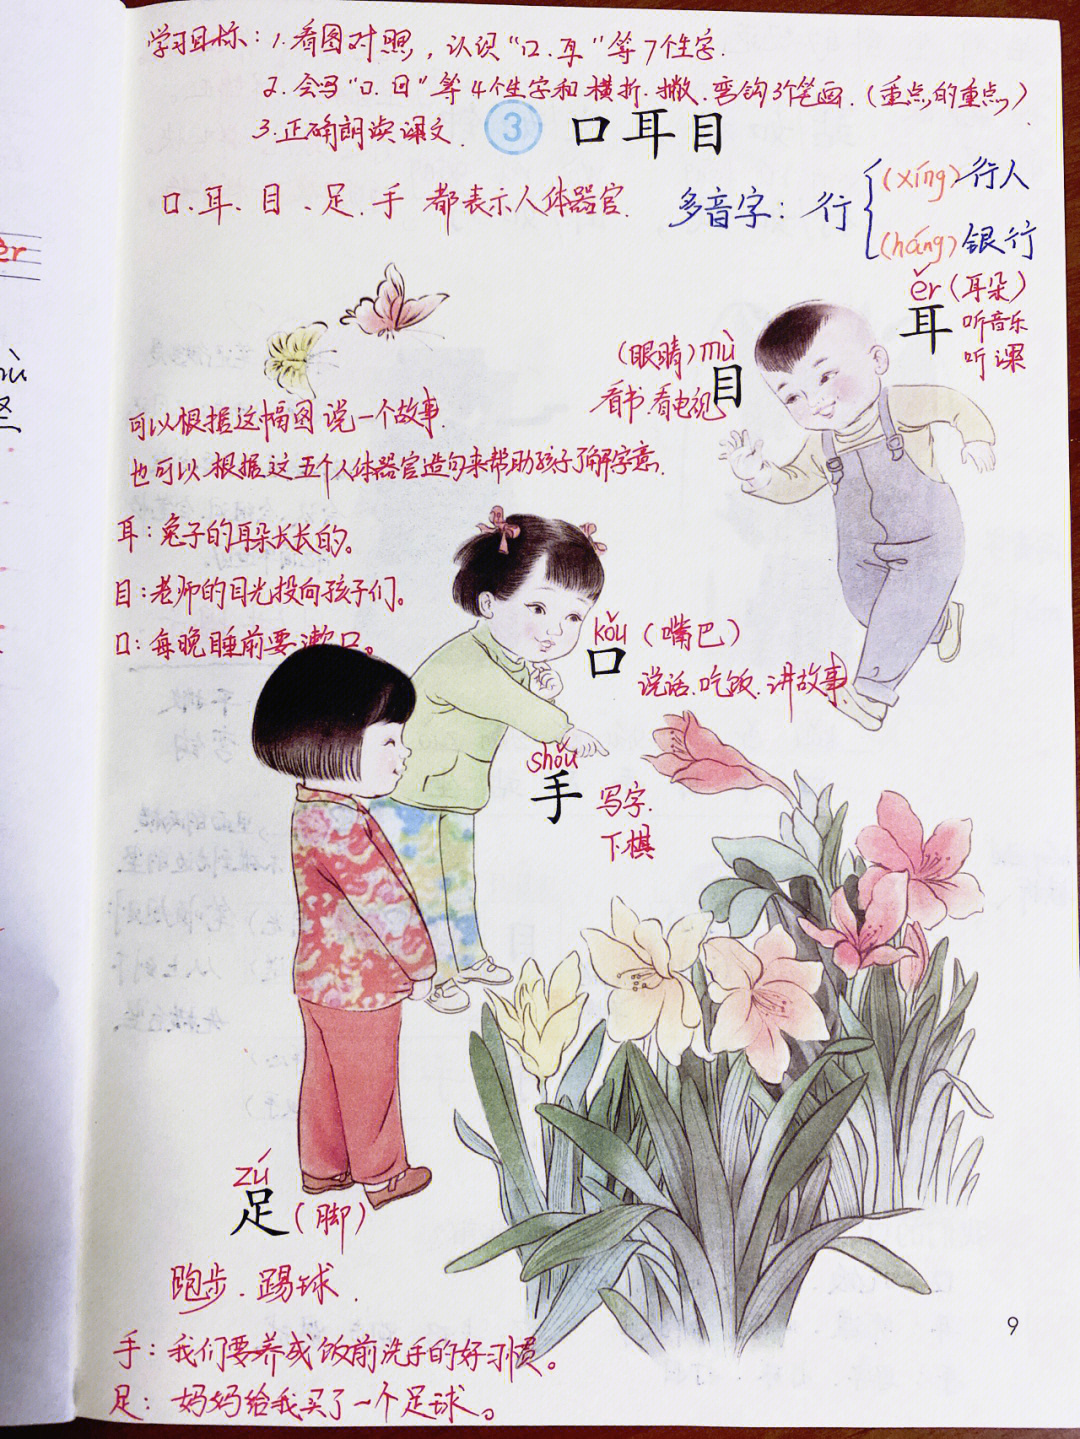 学习目标：1.看图对照，认识“口、耳”等7个生字.
2.会写“口.日”等4个生字和横折.撇.弯钩3个笔画.(重点的重点)
3.正确朗读课文.
3 口耳目
口、耳、目、足、手 都表示人体器官.
多音字：行
(xíng)行人
(háng)银行
ěr(耳朵)
耳 听音乐
听课
(眼睛)mù
目
看书.看电视
可以根据这幅图说一个故事.
也可以根据这五个人体器官造句来帮助孩子了解字意.
耳：兔子的耳朵长长的。
目：老师的目光投向孩子们。
口：每晚睡前要漱口。
kǒu(嘴巴)
口
说话.吃饭.讲故事
shǒu
手 写字.
下棋
zú
足(脚)
跑步.踢球.
手：我们要养成饭前洗手的好习惯。
足：妈妈给我买了一个足球。
9